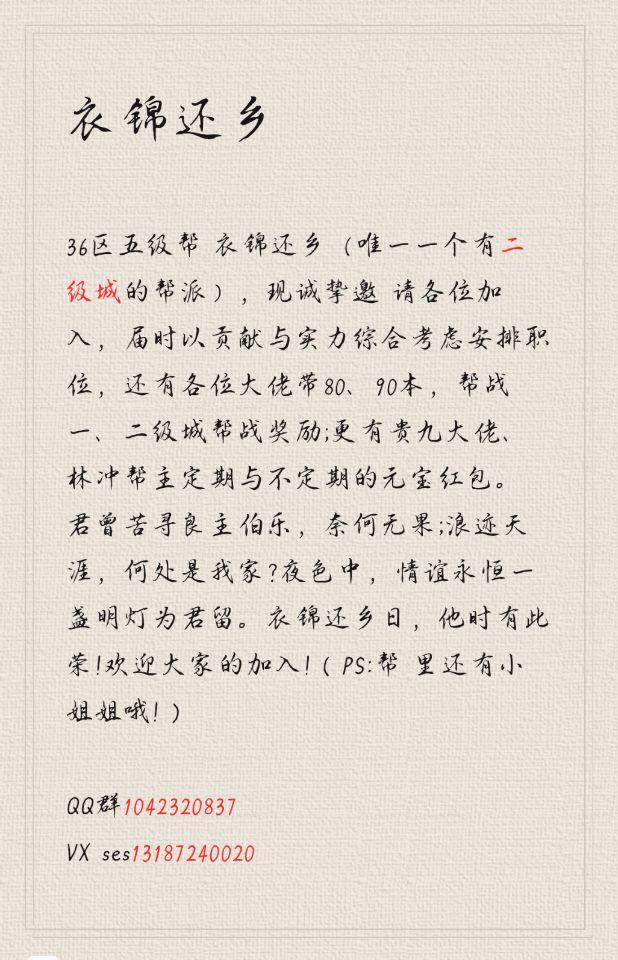 衣锦还乡
36区五级帮 衣锦还乡（唯一一个有二
级城的帮派），现诚挚邀 请各位加
入，届时以贡献与实力综合考虑安排职
位，还有各位大佬带80、90本，帮战
一、二级城帮战奖励;更有贵九大佬、
林冲帮主定期与不定期的元宝红包。
君曾苦寻良主伯乐，奈何无果;浪迹天
涯，何处是我家?夜色中，情谊永恒一
盏明灯为君留。衣锦还乡日，他时有此
荣!欢迎大家的加入!（PS:帮 里还有小
姐姐哦!）
QQ群1042320837
VX ses13187240020